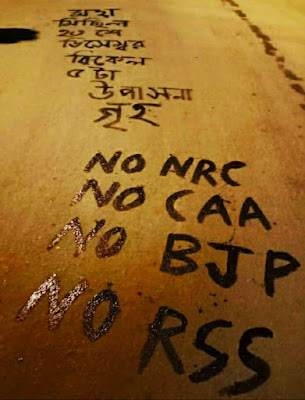 মহা
মিছিল
২০ শে
ডিসেম্বর
বিকেল
৫ টা
উপাসনা
গৃহ
NO NRC
NO CAA
NO BJP
NO RSS